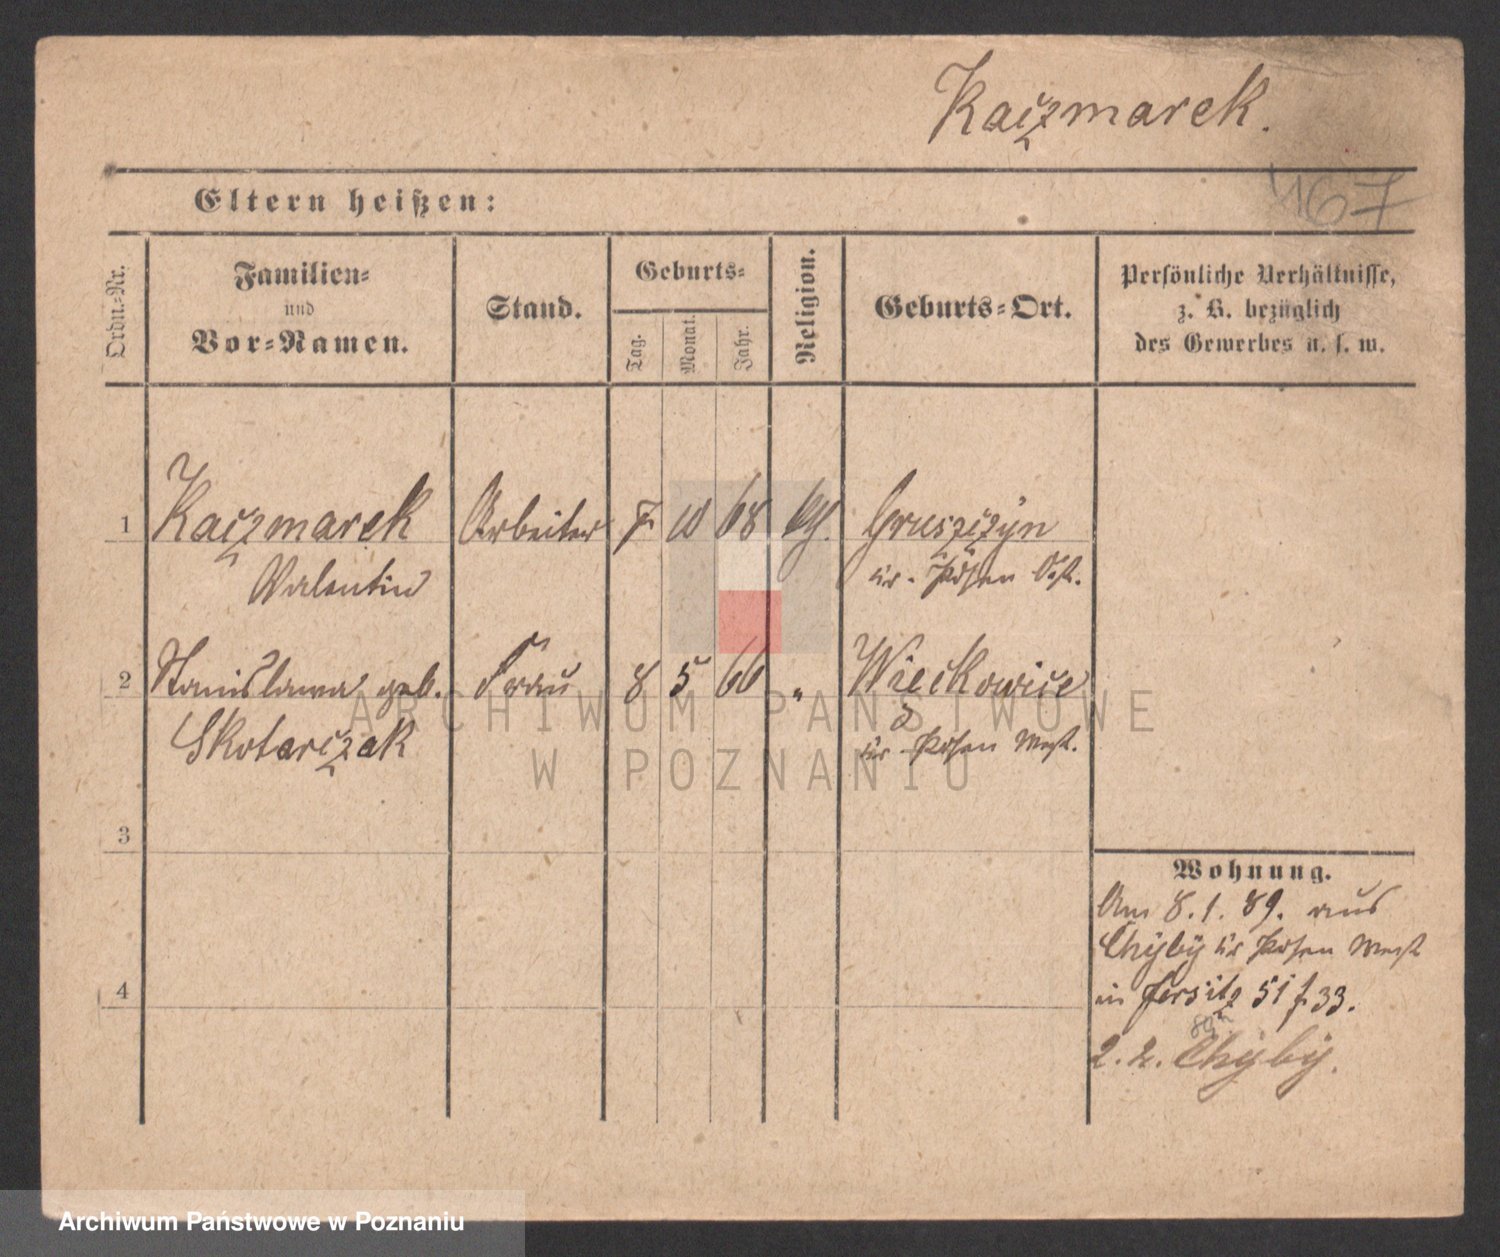 Kaczmarek.
467
Eltern heißen:
Ordn.-Nr.
Familien-
und
Vor-Namen.
Stand.
Geburts-
Tag.
Monat.
Jahr.
Religion.
Geburts-Ort.
Persönliche Verhältnisse,
z. B. bezüglich
des Gewerbes u. s. w.
1 Kaczmarek Arbeiter 7 10 68 kth. Gruszczyn
Valentin Kr. Posen Ost.
2 Stanislawa geb. Frau 8 5 66 " Więckowice
Skotarczak Kr. Posen West.
3
4
Wohnung.
Am 8.1.89. aus
Chyby Kr Posen West
in Jersitz 51 f 33.
89n
2.2. Chyby.
ARCHIWUM PAŃSTWOWE
W POZNANIU
Archiwum Państwowe w Poznaniu